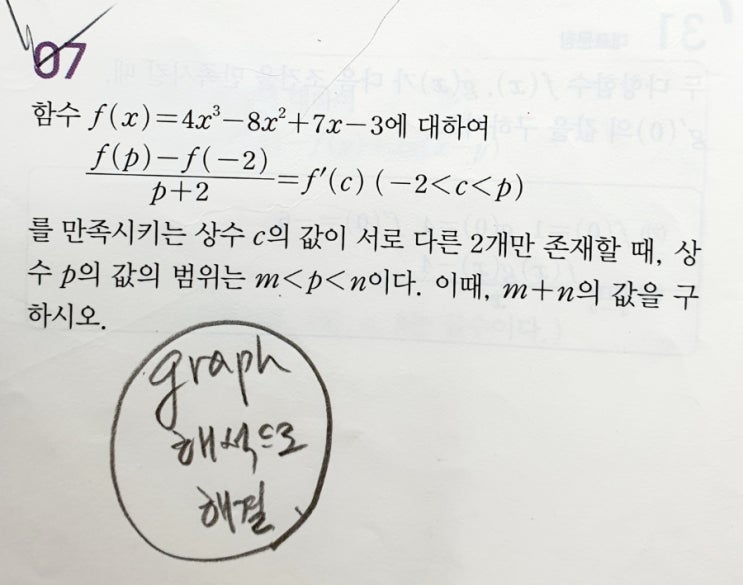 07
함수 f(x)=4x³-8x²+7x-3에 대하여
f(p)-f(-2)
p+2
=f'(c) (-2<c<p)
를 만족시키는 상수 c의 값이 서로 다른 2개만 존재할 때, 상
수 p의 값의 범위는 m<p<n이다. 이때, m+n의 값을 구
하시오.
graph
해석으로
해결